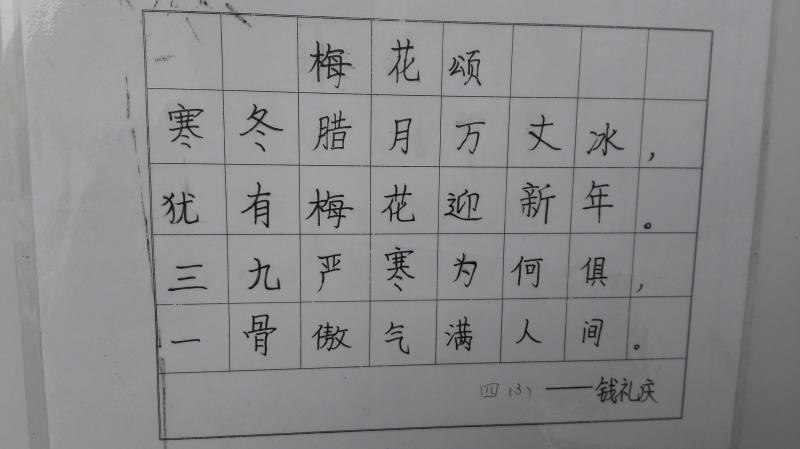 梅花颂
寒冬腊月万丈冰，
犹有梅花迎新年。
三九严寒为何俱，
一骨傲气满人间。
四（3）——钱礼庆